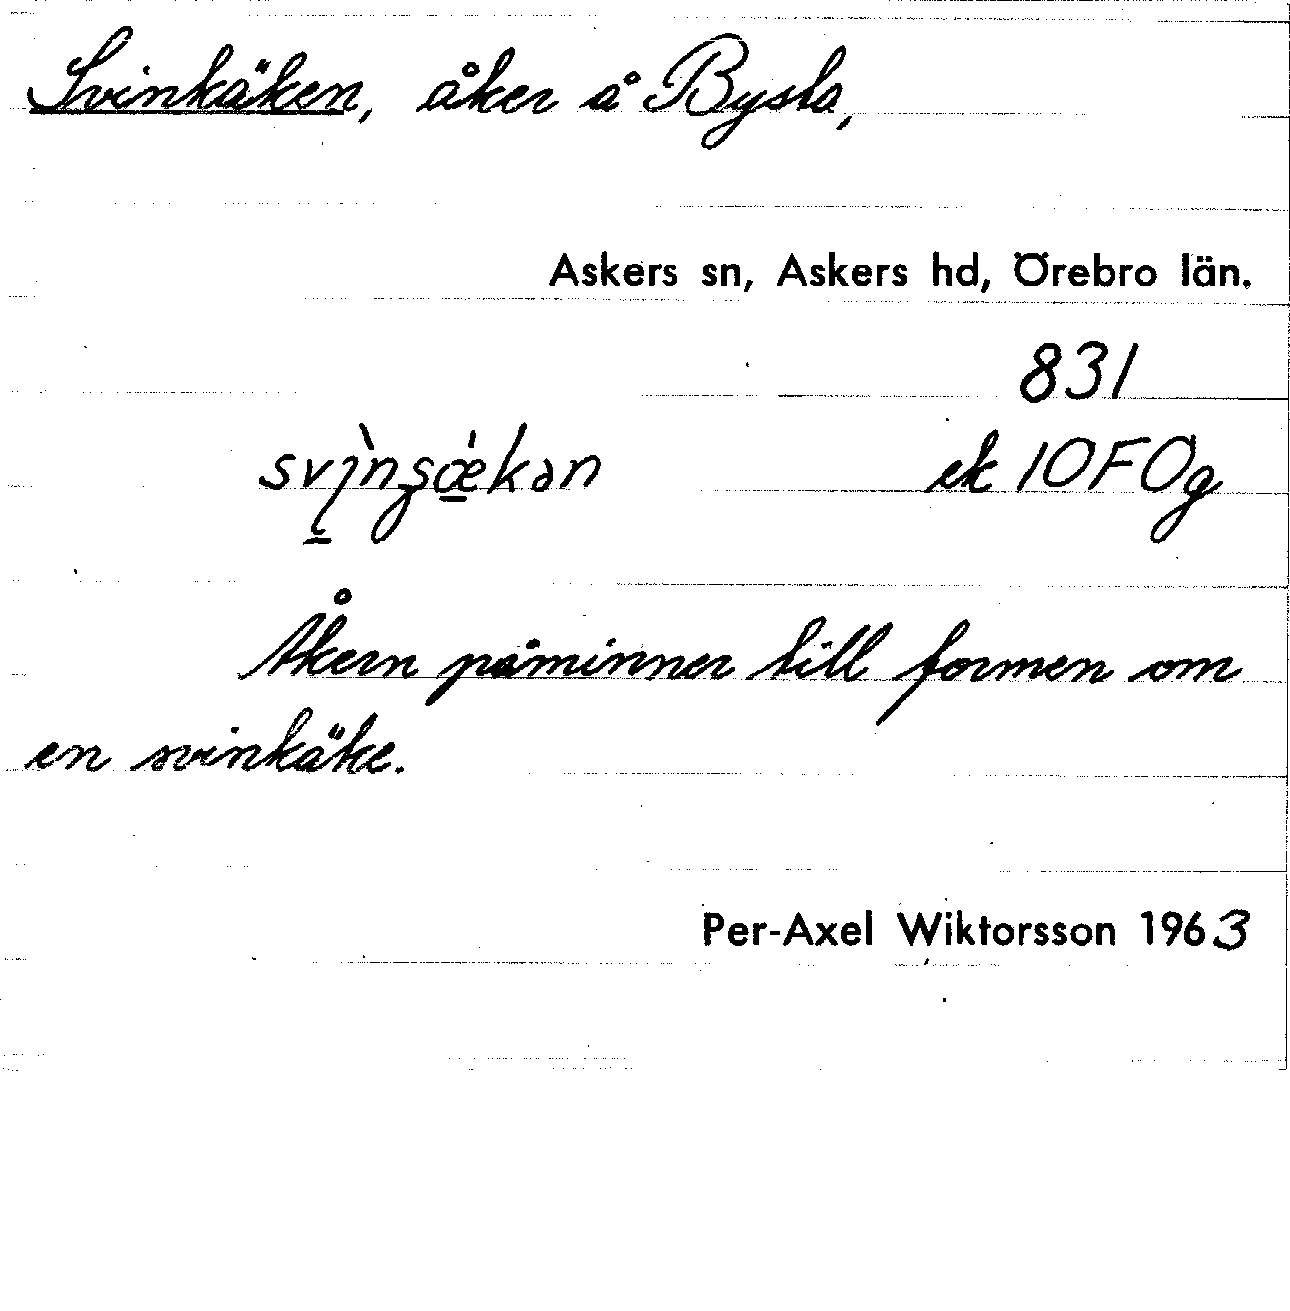 Svinkäken, åker å Bysta,
Askers sn, Askers hd, Örebro län.
831
ek 10F0g
Åkern påminner till formen om
en svinkäke.
Per-Axel Wiktorsson 1963